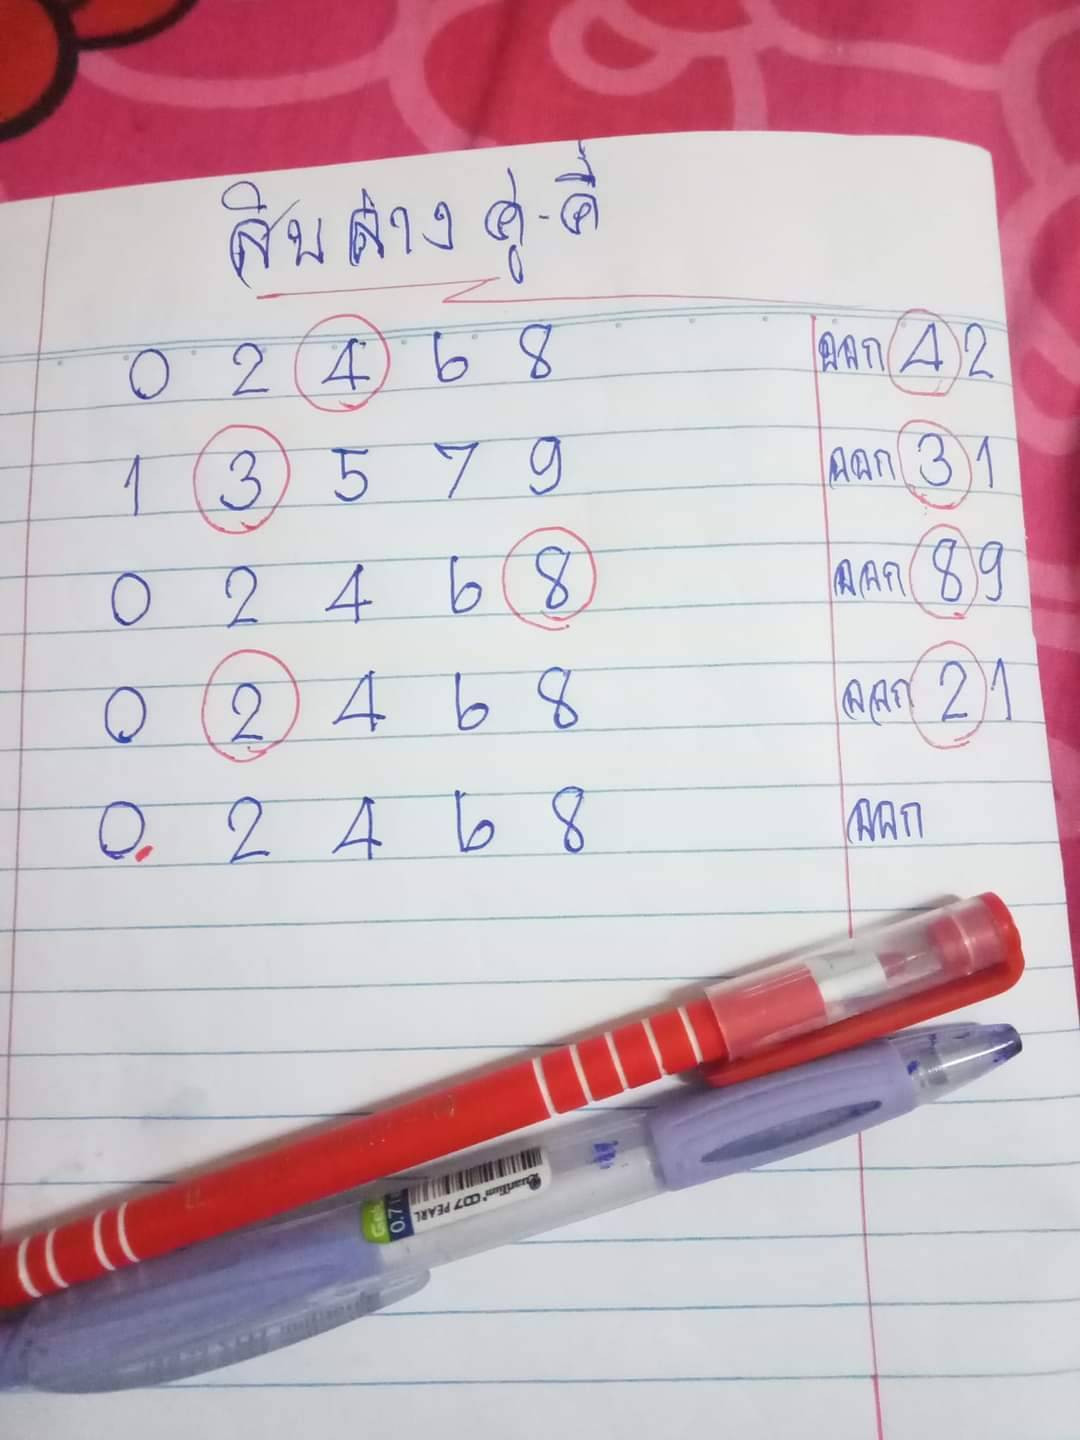 สิบล่าง คู่-คี่
0 2 4 6 8 ออก 42
1 3 5 7 9 ออก 31
0 2 4 6 8 ออก 89
0 2 4 6 8 ออก 21
0 2 4 6 8 ออก
Quantum 007 PEARL
Gel 0.7